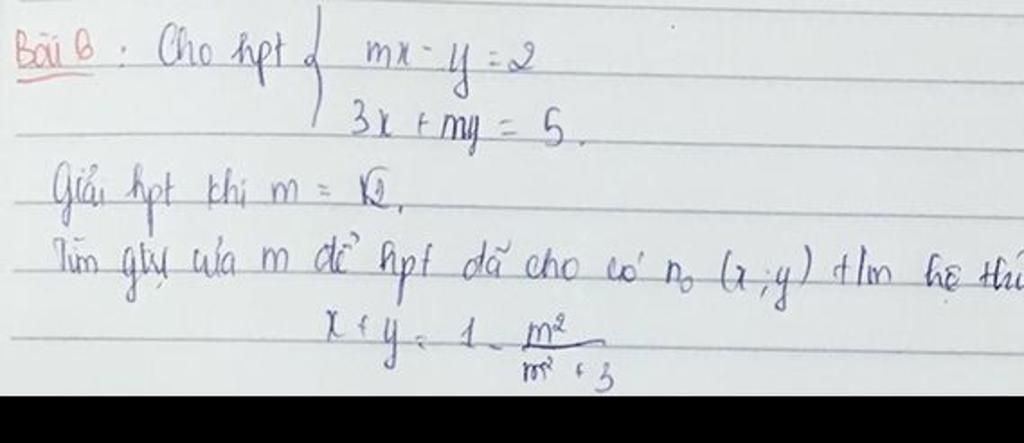 Bài 6 : Cho hpt { mx - y = 2
3x + my = 5.
Giải hpt khi m = √2.
Tìm gtrị của m để hpt đã cho có n₀ (x;y) t/m hệ thứ
x + y = 1 - m²/(m² + 3)